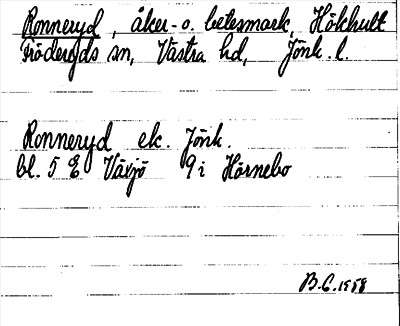 Ronneryd, åker- o. betesmark, Hökhult
Fröderyds sn, Västra hd, Jönk. l.
Ronneryd ek. Jönk.
bl. 5 E Växjö 9 i Hörnebo
B.G. 1958